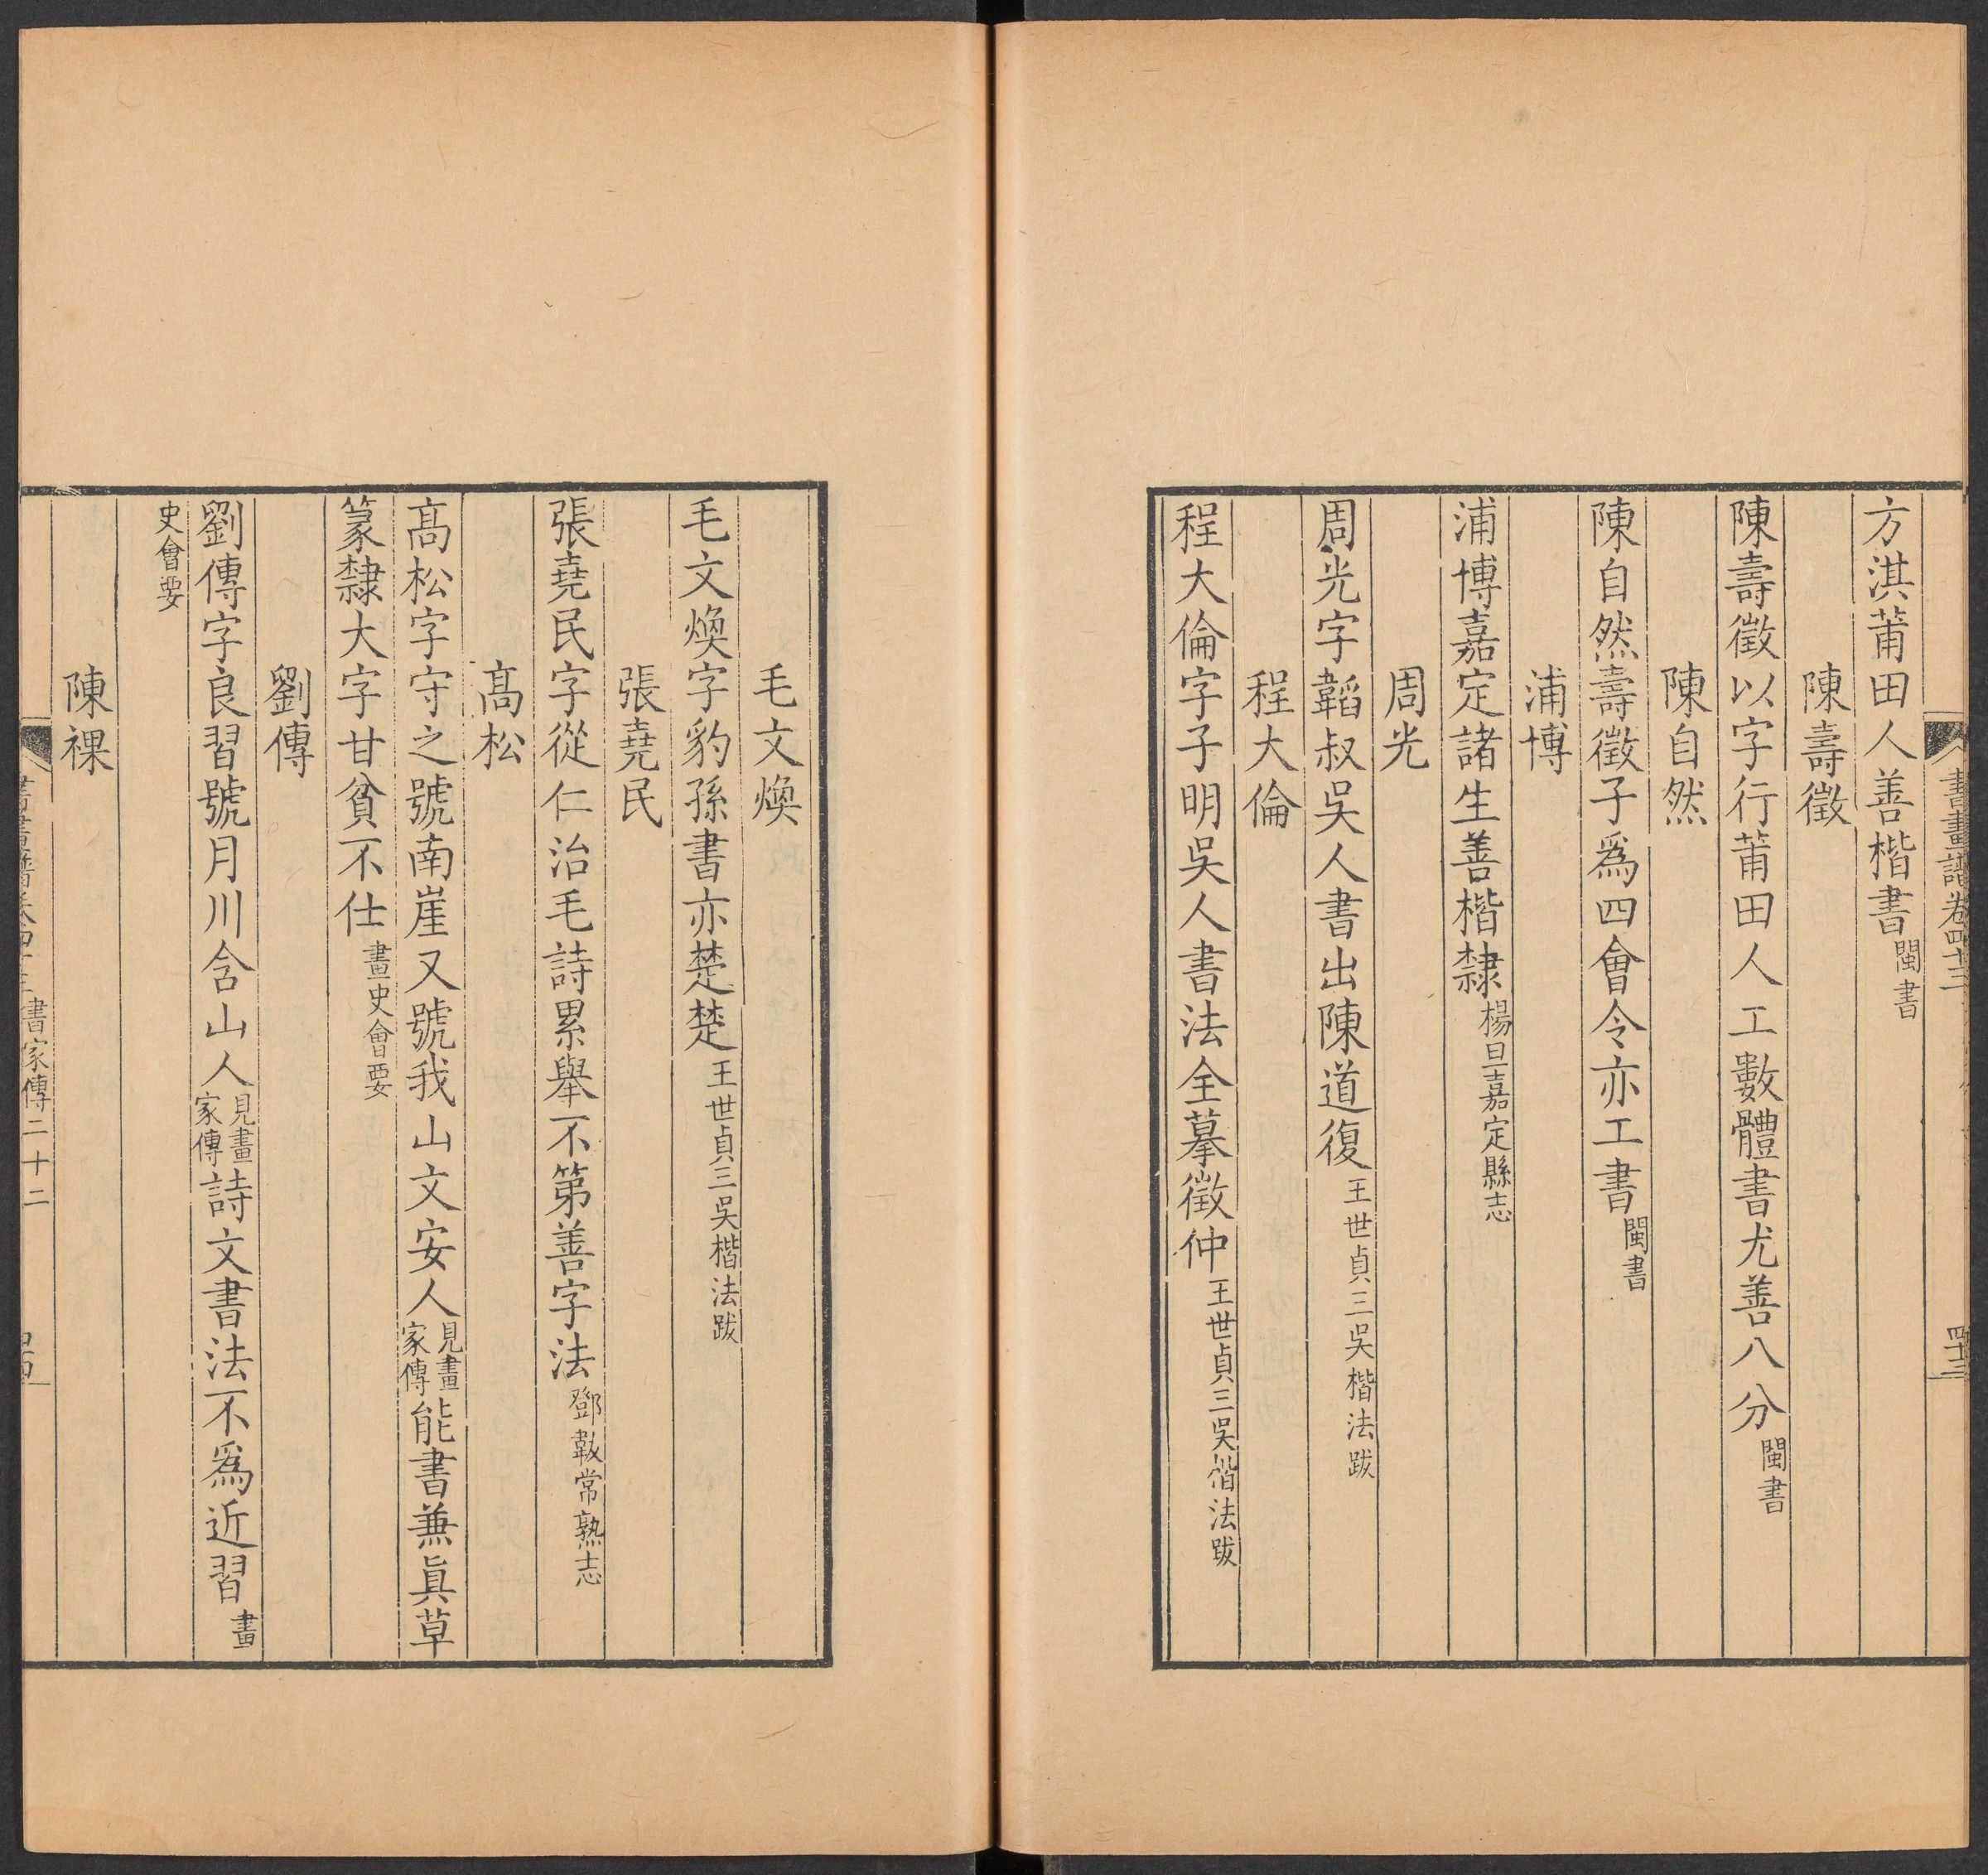 書畫譜卷四十三
四十三
方淇莆田人善楷書閩書
陳壽徵
陳壽徵以字行莆田人工數體書尤善八分閩書
陳自然
陳自然壽徵子爲四會令亦工書閩書
浦博
浦博嘉定諸生善楷隸楊旦嘉定縣志
周光
周光字韜叔吳人書出陳道復王世貞三吳楷法跋
程大倫
程大倫字子明吳人書法全摹徵仲王世貞三吳楷法跋
毛文煥
毛文煥字豹孫書亦楚楚王世貞三吳楷法跋
張堯民
張堯民字從仁治毛詩累舉不第善字法鄧韍常熟志
髙松
髙松字守之號南崖又號我山文安人見畫家傳能書兼眞草
篆隸大字甘貧不仕畫史會要
劉傳
劉傳字良習號月川含山人見畫家傳詩文書法不爲近習畫
史會要
陳祼
書畫譜卷四十三 書家傳二十二
四十四